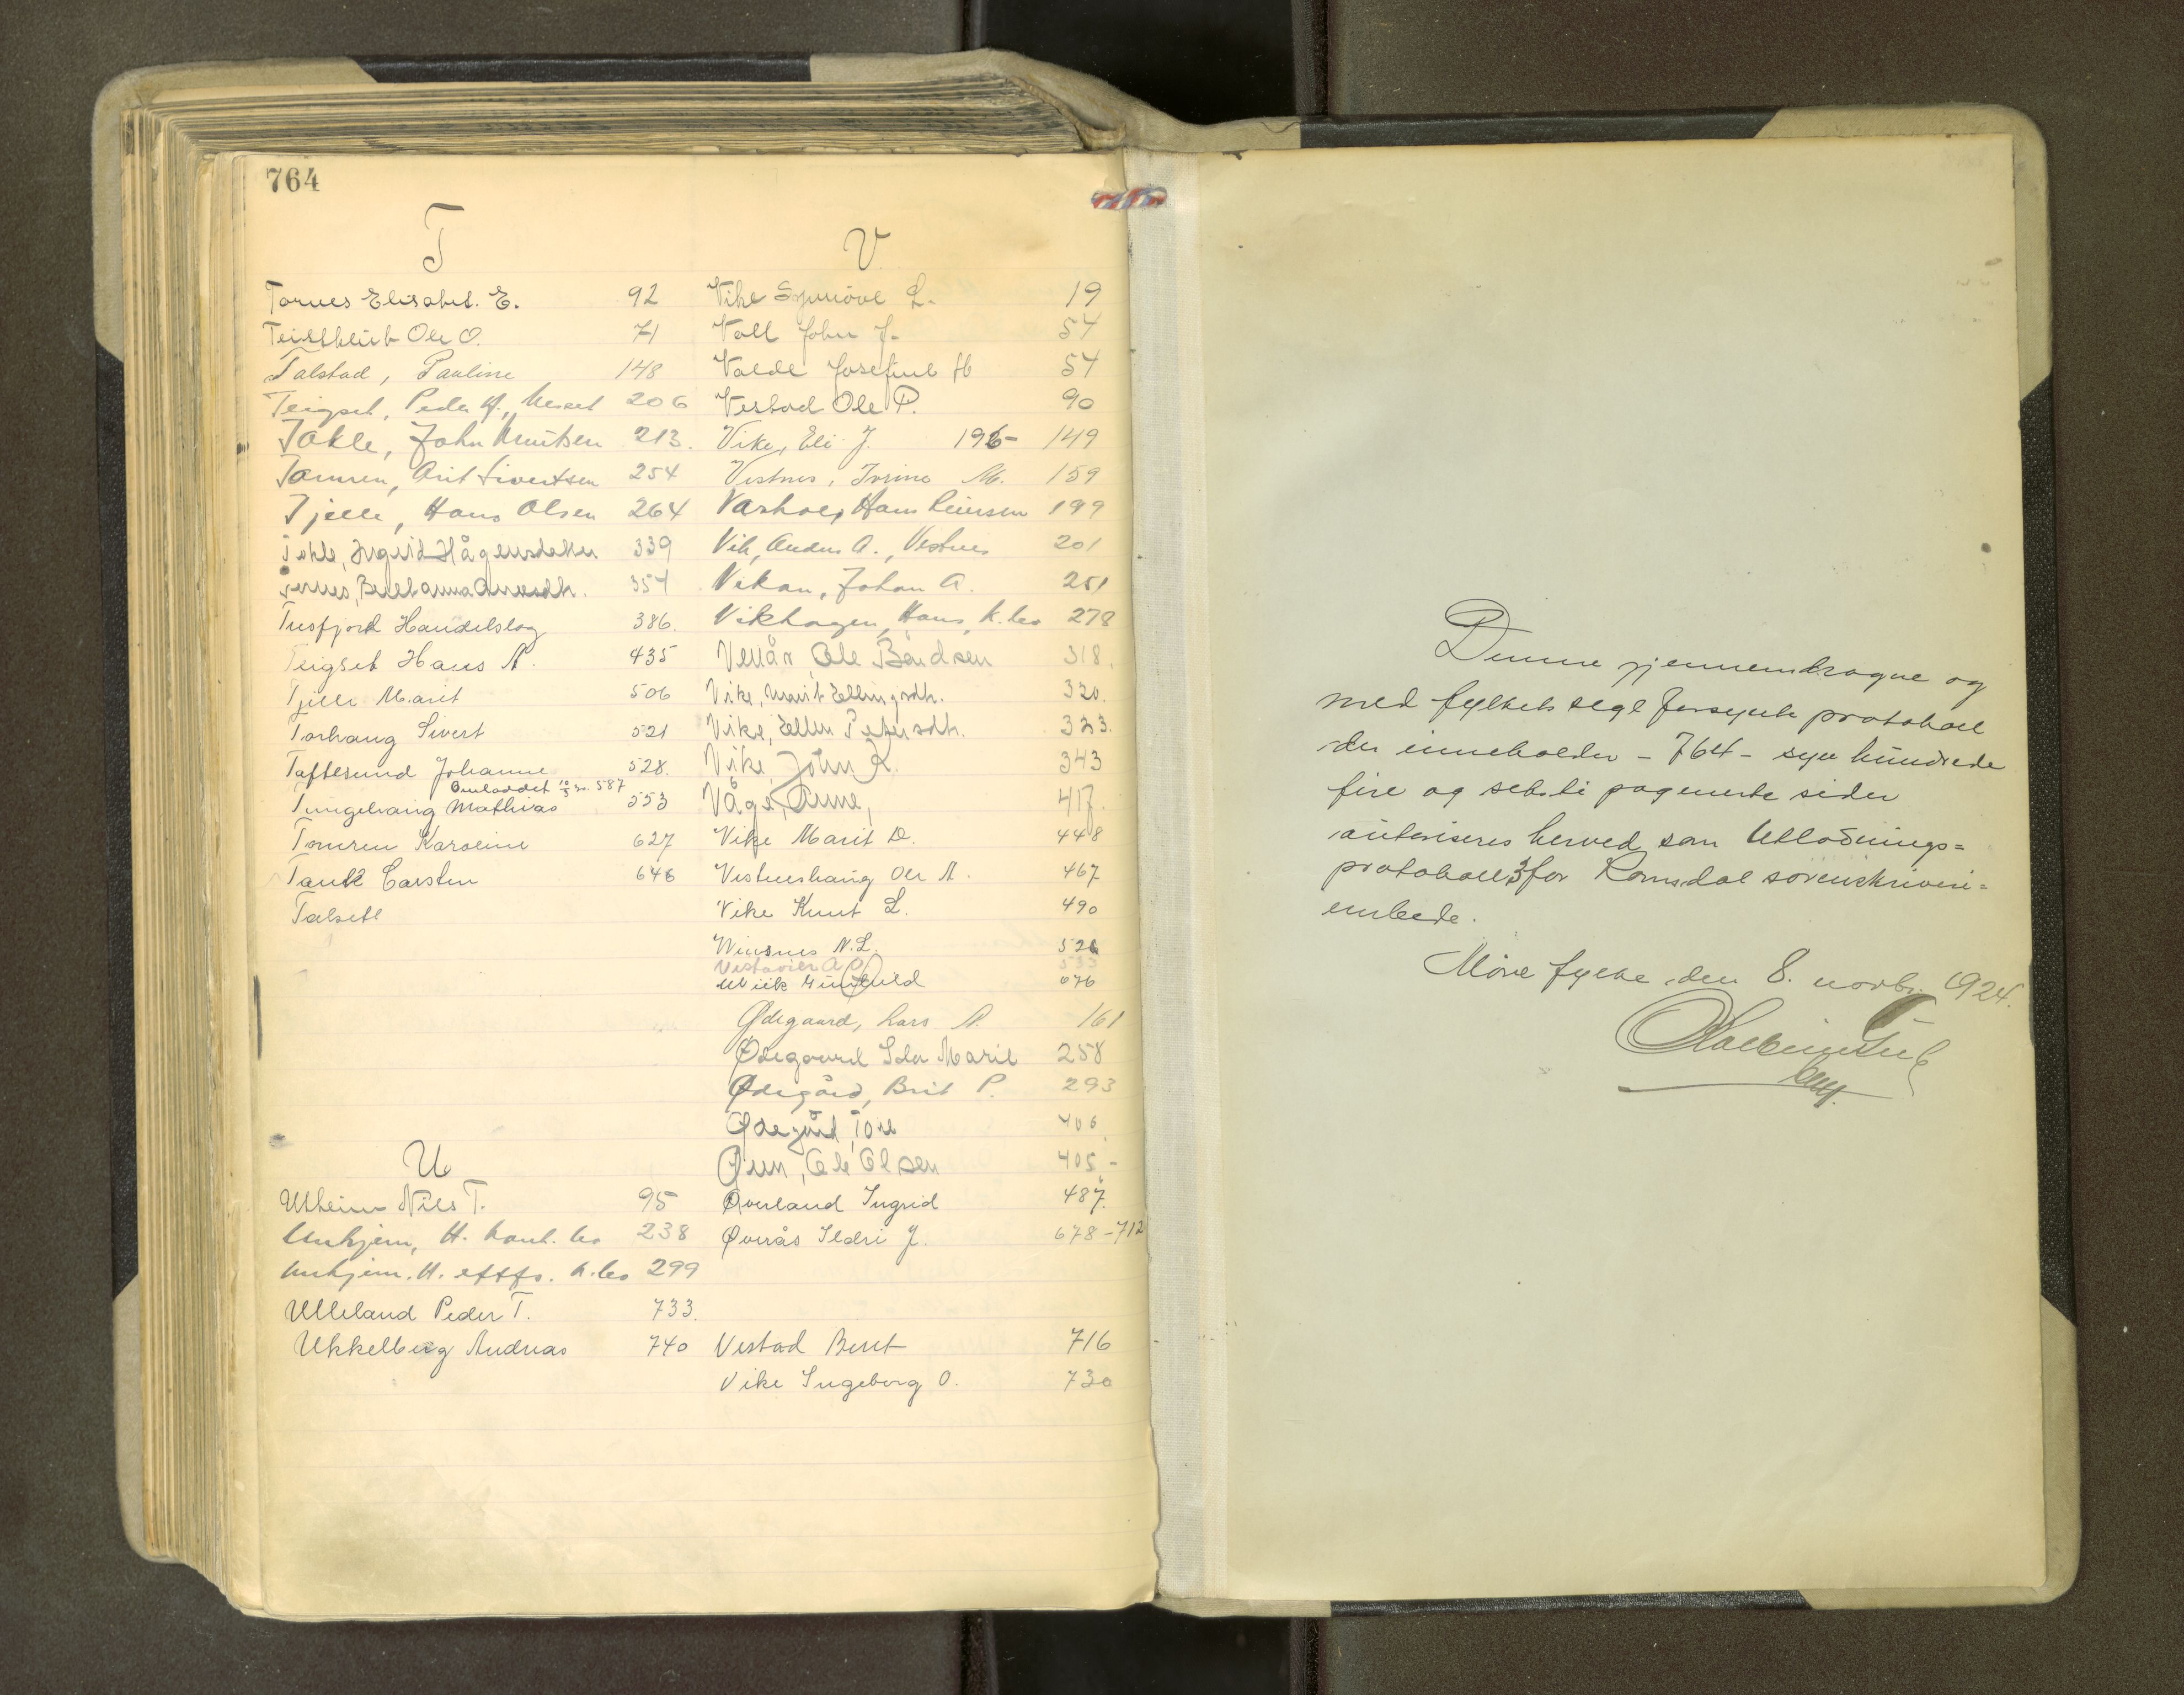 764
T
Tornes Elisabet. E. 92
Ole O. 71
Talstad, Pauline 148
Teigset, Peder A., 206
Tokle, John Knutsen 213.
Tomren, Arit Sivertsen 254
Tjelle, Hans Olsen 264
Tokle, Ingrid Hågensdatter 339
354
Tresfjord Handelslag 386.
Teigset Hans A. 435
Tjelle Marit 506
Torhaug Sivert 521
Taftesund Johanne 528.
Omloddet 10/3 30. 587
Tungehaug Mathias 553
Tomren Karoline 627
Tank Carsten 646
Talset
U
Ulheim Nils T. 95
Unhjem, H. konk. bo 238
Unhjem. H. eftf. k. bo 299
Ulleland Peder T. 733.
Ukkelberg Andreas 740
V
Vike Synnöve L. 19
Voll John J. 54
Volde Josefine H 54
Vestad Ole P. 90
Vike, Eli J. 196- 149
Vestnes, M. 159
Varhol, Hans 199
Vik, Anders A., Vestnes 201
Vikan, Johan A. 251
Vikhagen, Hans, k. bo 278
Ole Bårdsen 318.
Vike, Marit Ellingsdtr. 320.
Vike, Ellen Petersdtr. 323.
Vike, John K. 343
Våge, Anne, 417.
Vike Marit D. 448
Vestneshaug Ole A. 467
Vike Knut L. 490
Winsnes N. L. 526
A O 533
Wiik Gunhild 676
Ødegaard, Lars A. 161
Ødegaard Ida Marie 258
Ødegård, Brit P. 293
Ødegård, Tore 406
Ole Olsen 405-
Øverland Ingrid 487.
Øverås Ildri J. 678-712
Vestad Beret 716
Vike Ingeborg O. 730
Denne gjennemdragne og
med fylkets segl forsynte protokoll
der inneholder - 764 - syv hundrede
fire og seksti paginerte sider
autoriseres herved som Utlodnings=
protokoll 3 for Romsdal sorenskriveri=
embede.
Möre fylke, den 8. novbr. 1924.